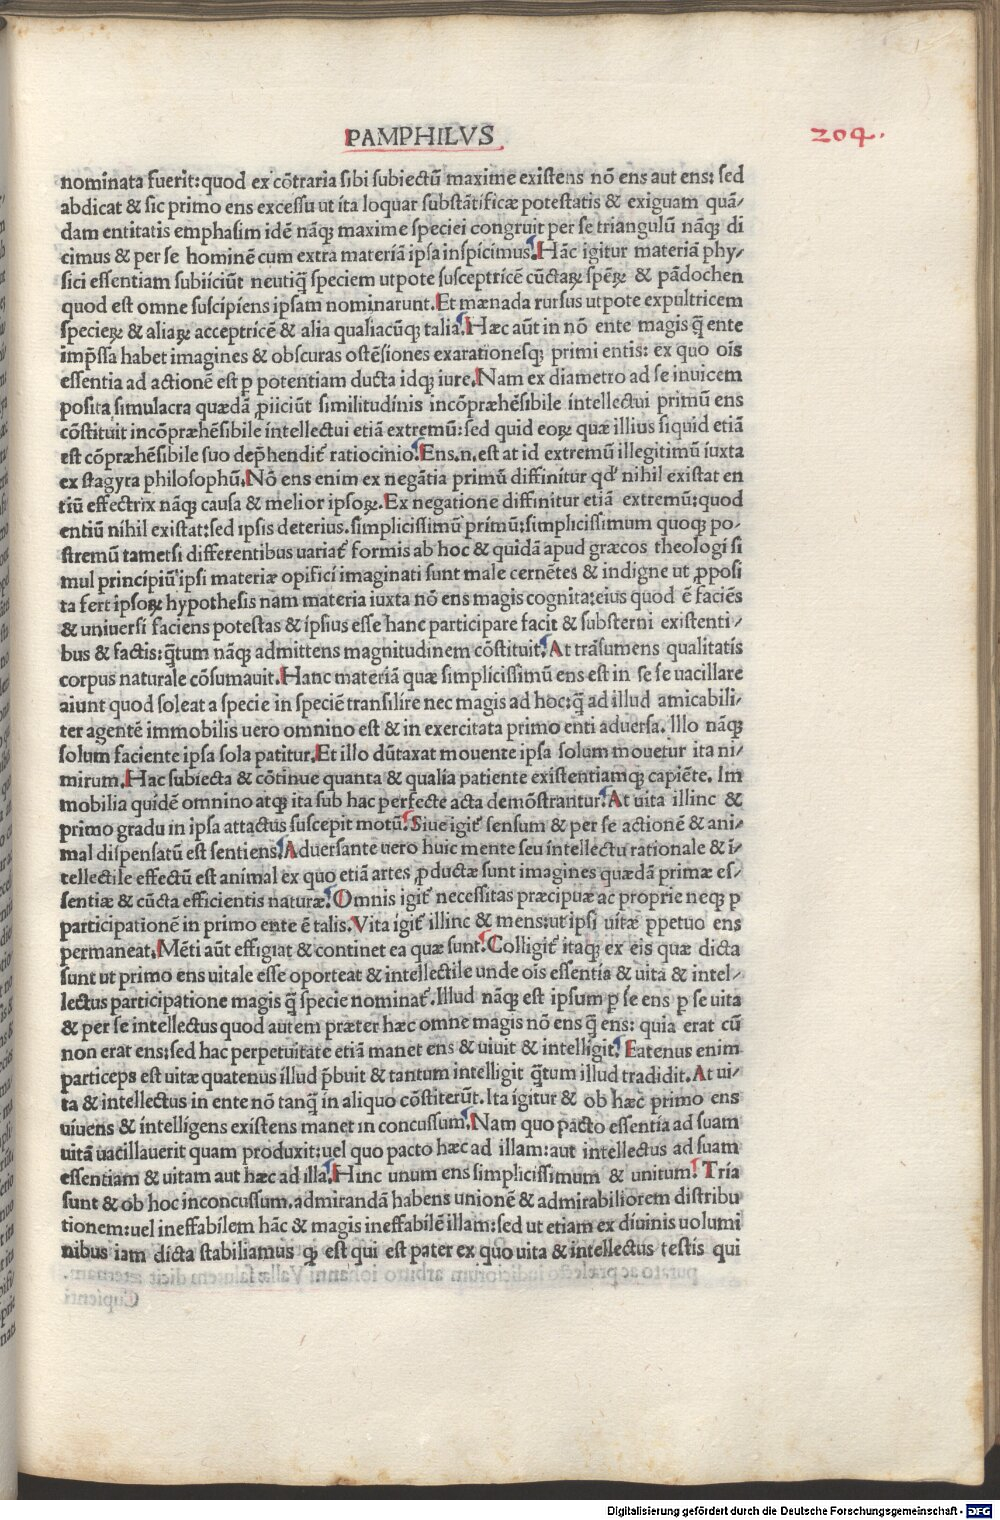 PAMPHILVS
204.
nominata fuerit: quod ex cõtraria sibi subiectũ maxime existens nõ ens aut ens: sed
abdicat & sic primo ens excessu ut ita loquar substãtificæ potestatis & exiguam quã/
dam entitatis emphasim idẽ nãq; maxime speciei congruit per se triangulũ nãq; di
cimus & per se hominẽ cum extra materiã ipsa inspicimus. Hãc igitur materiã phy/
sici essentiam subiiciũt neutiq̃ speciem utpote susceptricẽ cũctaꝝ spẽꝝ & pãdochen
quod est omne suscipiens ipsam nominarunt. Et mænada rursus utpote expultricem
specieꝝ & aliaꝝ acceptricẽ & alia qualiacũq; talia. Hæc aũt in nõ ente magis q̃ ente
imp̃ssa habet imagines & obscuras ostẽsiones exarationesq; primi entis: ex quo oĩs
essentia ad actionẽ est p potentiam ducta idq; iure. Nam ex diametro ad se inuicem
posita simulacra quædã ꝓiiciũt similitudinis incõpræhẽsibile intellectui primũ ens
cõstituit incõpræhẽsibile intellectui etiã extremũ: sed quid eoꝝ quæ illius siquid etiã
est cõpræhẽsibile suo dep̃hendit̃ ratiocinio. Ens.n. est at id extremũ illegitimũ iuxta
ex stagyra philosophũ. Nõ ens enim ex negãtia primũ diffinitur qd' nihil existat en
tiũ effectrix nãq; causa & melior ipsoꝝ. Ex negatione diffinitur etiã extremũ: quod
entiũ nihil existat: sed ipsis deterius. simplicissimũ primũ: simplicissimum quoq; po/
stremũ tametsi differentibus uariat̃ formis ab hoc & quidã apud græcos theologi si
mul principiũ ipsi materiæ opifici imaginati sunt male cernẽtes & indigne ut ꝓposi
ta fert ipsoꝝ hypothesis nam materia iuxta nõ ens magis cognita: eius quod ẽ faciẽs
& uniuersi faciens potestas & ipsius esse hanc participare facit & substerni existenti/
bus & factis: q̃tum nãq; admittens magnitudinem cõstituit. At trãsumens qualitatis
corpus naturale cõsumauit. Hanc materiã quæ simplicissimũ ens est in se se uacillare
aiunt quod soleat a specie in speciẽ transilire nec magis ad hoc: q̃ ad illud amicabili/
ter agentẽ immobilis uero omnino est & in exercitata primo enti aduersa. Illo nãq;
solum faciente ipsa sola patitur. Et illo dũtaxat mouente ipsa solum mouetur ita ni/
mirum. Hac subiecta & cõtinue quanta & qualia patiente existentiamq; capiẽte. Im
mobilia quidẽ omnino atq; ita sub hac perfecte acta demõstrantur. At uita illinc &
primo gradu in ipsa attactus suscepit motũ. Siue igit̃ sensum & per se actionẽ & ani/
mal dispensatũ est sentiens. Aduersante uero huic mente seu intellectu rationale & ĩ/
tellectile effectũ est animal ex quo etiã artes ꝓductæ sunt imagines quædã primæ es/
sentiæ & cũcta efficientis naturæ. Omnis igit̃ necessitas præcipuæ ac proprie neq; p
participationẽ in primo ente ẽ talis. Vita igit̃ illinc & mens: ut ipsi uitæ ꝑpetuo ens
permaneat. Mẽti aũt effigiat & continet ea quæ sunt. Colligit̃ itaq; ex eis quæ dicta
sunt ut primo ens uitale esse oporteat & intellectile unde oĩs essentia & uita & intel/
lectus participatione magis q̃ specie nominat̃. Illud nãq; est ipsum ꝑ se ens ꝑ se uita
& per se intellectus quod autem præter hæc omne magis nõ ens q̃ ens: quia erat cũ
non erat ens: sed hac perpetuitate etiã manet ens & uiuit & intelligit. Eatenus enim
particeps est uitæ quatenus illud p̃buit & tantum intelligit q̃tum illud tradidit. At ui/
ta & intellectus in ente nõ tanq̃ in aliquo cõstiterũt. Ita igitur & ob hæc primo ens
uiuens & intelligens existens manet in concussum. Nam quo pacto essentia ad suam
uitã uacillauerit quam produxit: uel quo pacto hæc ad illam: aut intellectus ad suam
essentiam & uitam aut hæc ad illã. Hinc unum ens simplicissimum & unitum. Tria
sunt & ob hoc inconcussum. admirandã habens unionẽ & admirabiliorem distribu
tionem: uel ineffabilem hãc & magis ineffabilẽ illam: sed ut etiam ex diuinis uolumi
nibus iam dicta stabiliamus q; est qui est pater ex quo uita & intellectus testis qui
Digitalisierung gefördert durch die Deutsche Forschungsgemeinschaft - DFG